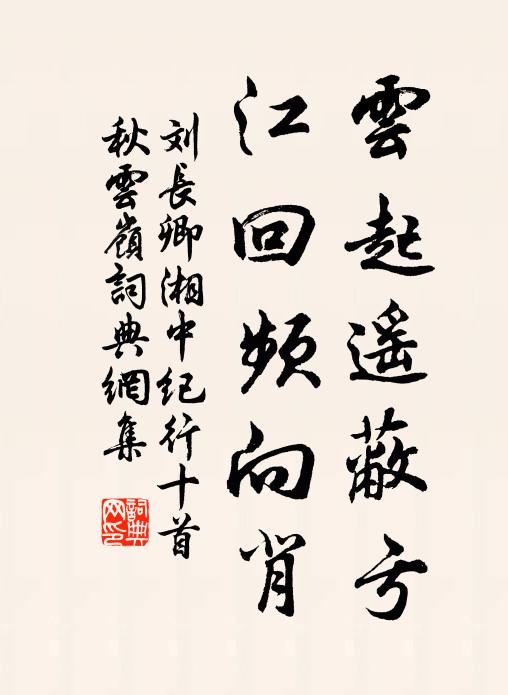 雲起遥蔽亏
江回频向背
刘長卿湘中纪行十首
秋雲嶺詞典網集
詞典
网印